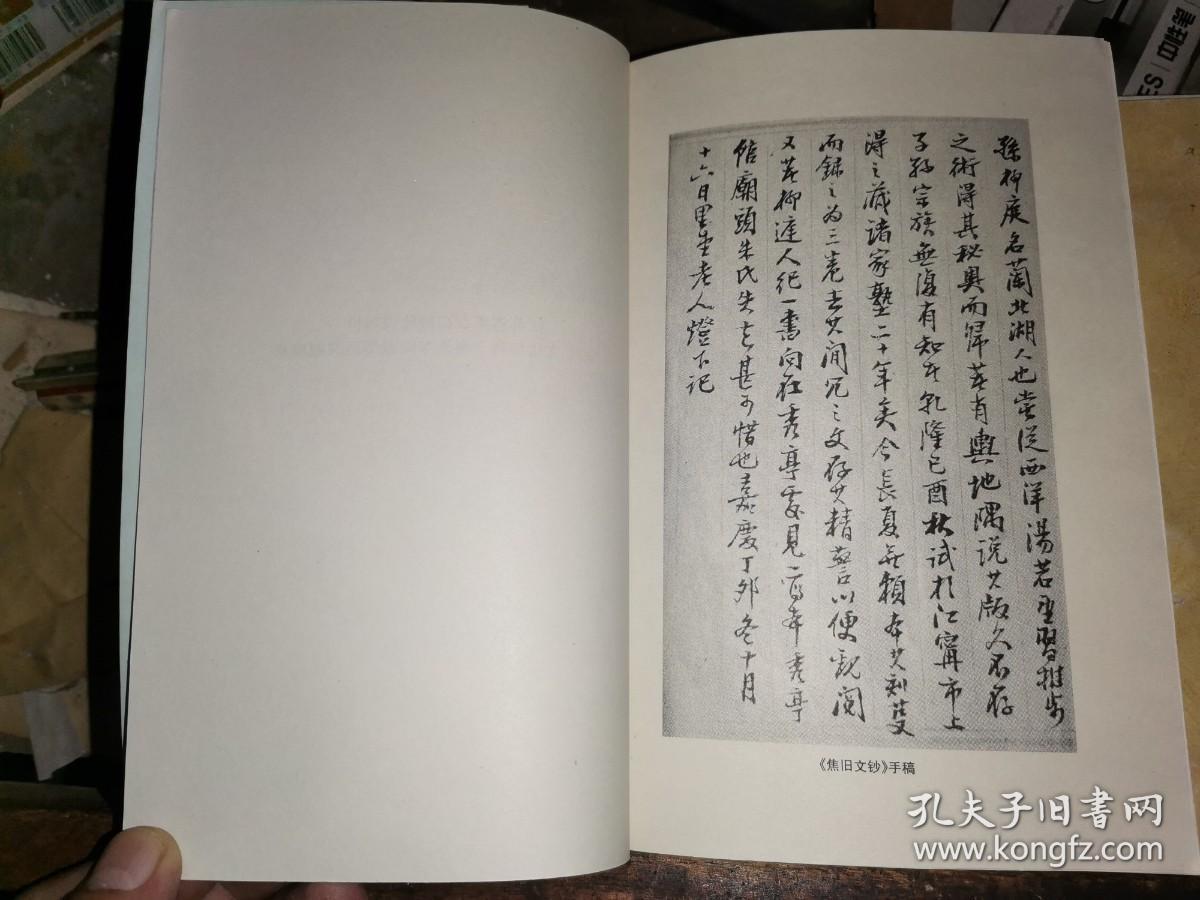 孫柳庭名蘭北湖人也嘗從西洋湯若望習推步
之術得其秘奥而歸著有輿地隅説其版久不存
子孫宗族無復有知者乾隆己酉秋試於江寧市上
得之藏諸家塾二十年矣今長夏無賴本其刻
而錄之為三卷去其閒冗之文存其精警以便觀閲
又著柳遳人紀一書向在秀亭處見一寫本秀亭
館廟頭朱氏失去甚可惜也嘉慶丁卯冬十月
十六日里堂老人燈下記
《焦旧文钞》手稿
孔夫子旧书网
www.kongfz.com
中性笔
ES